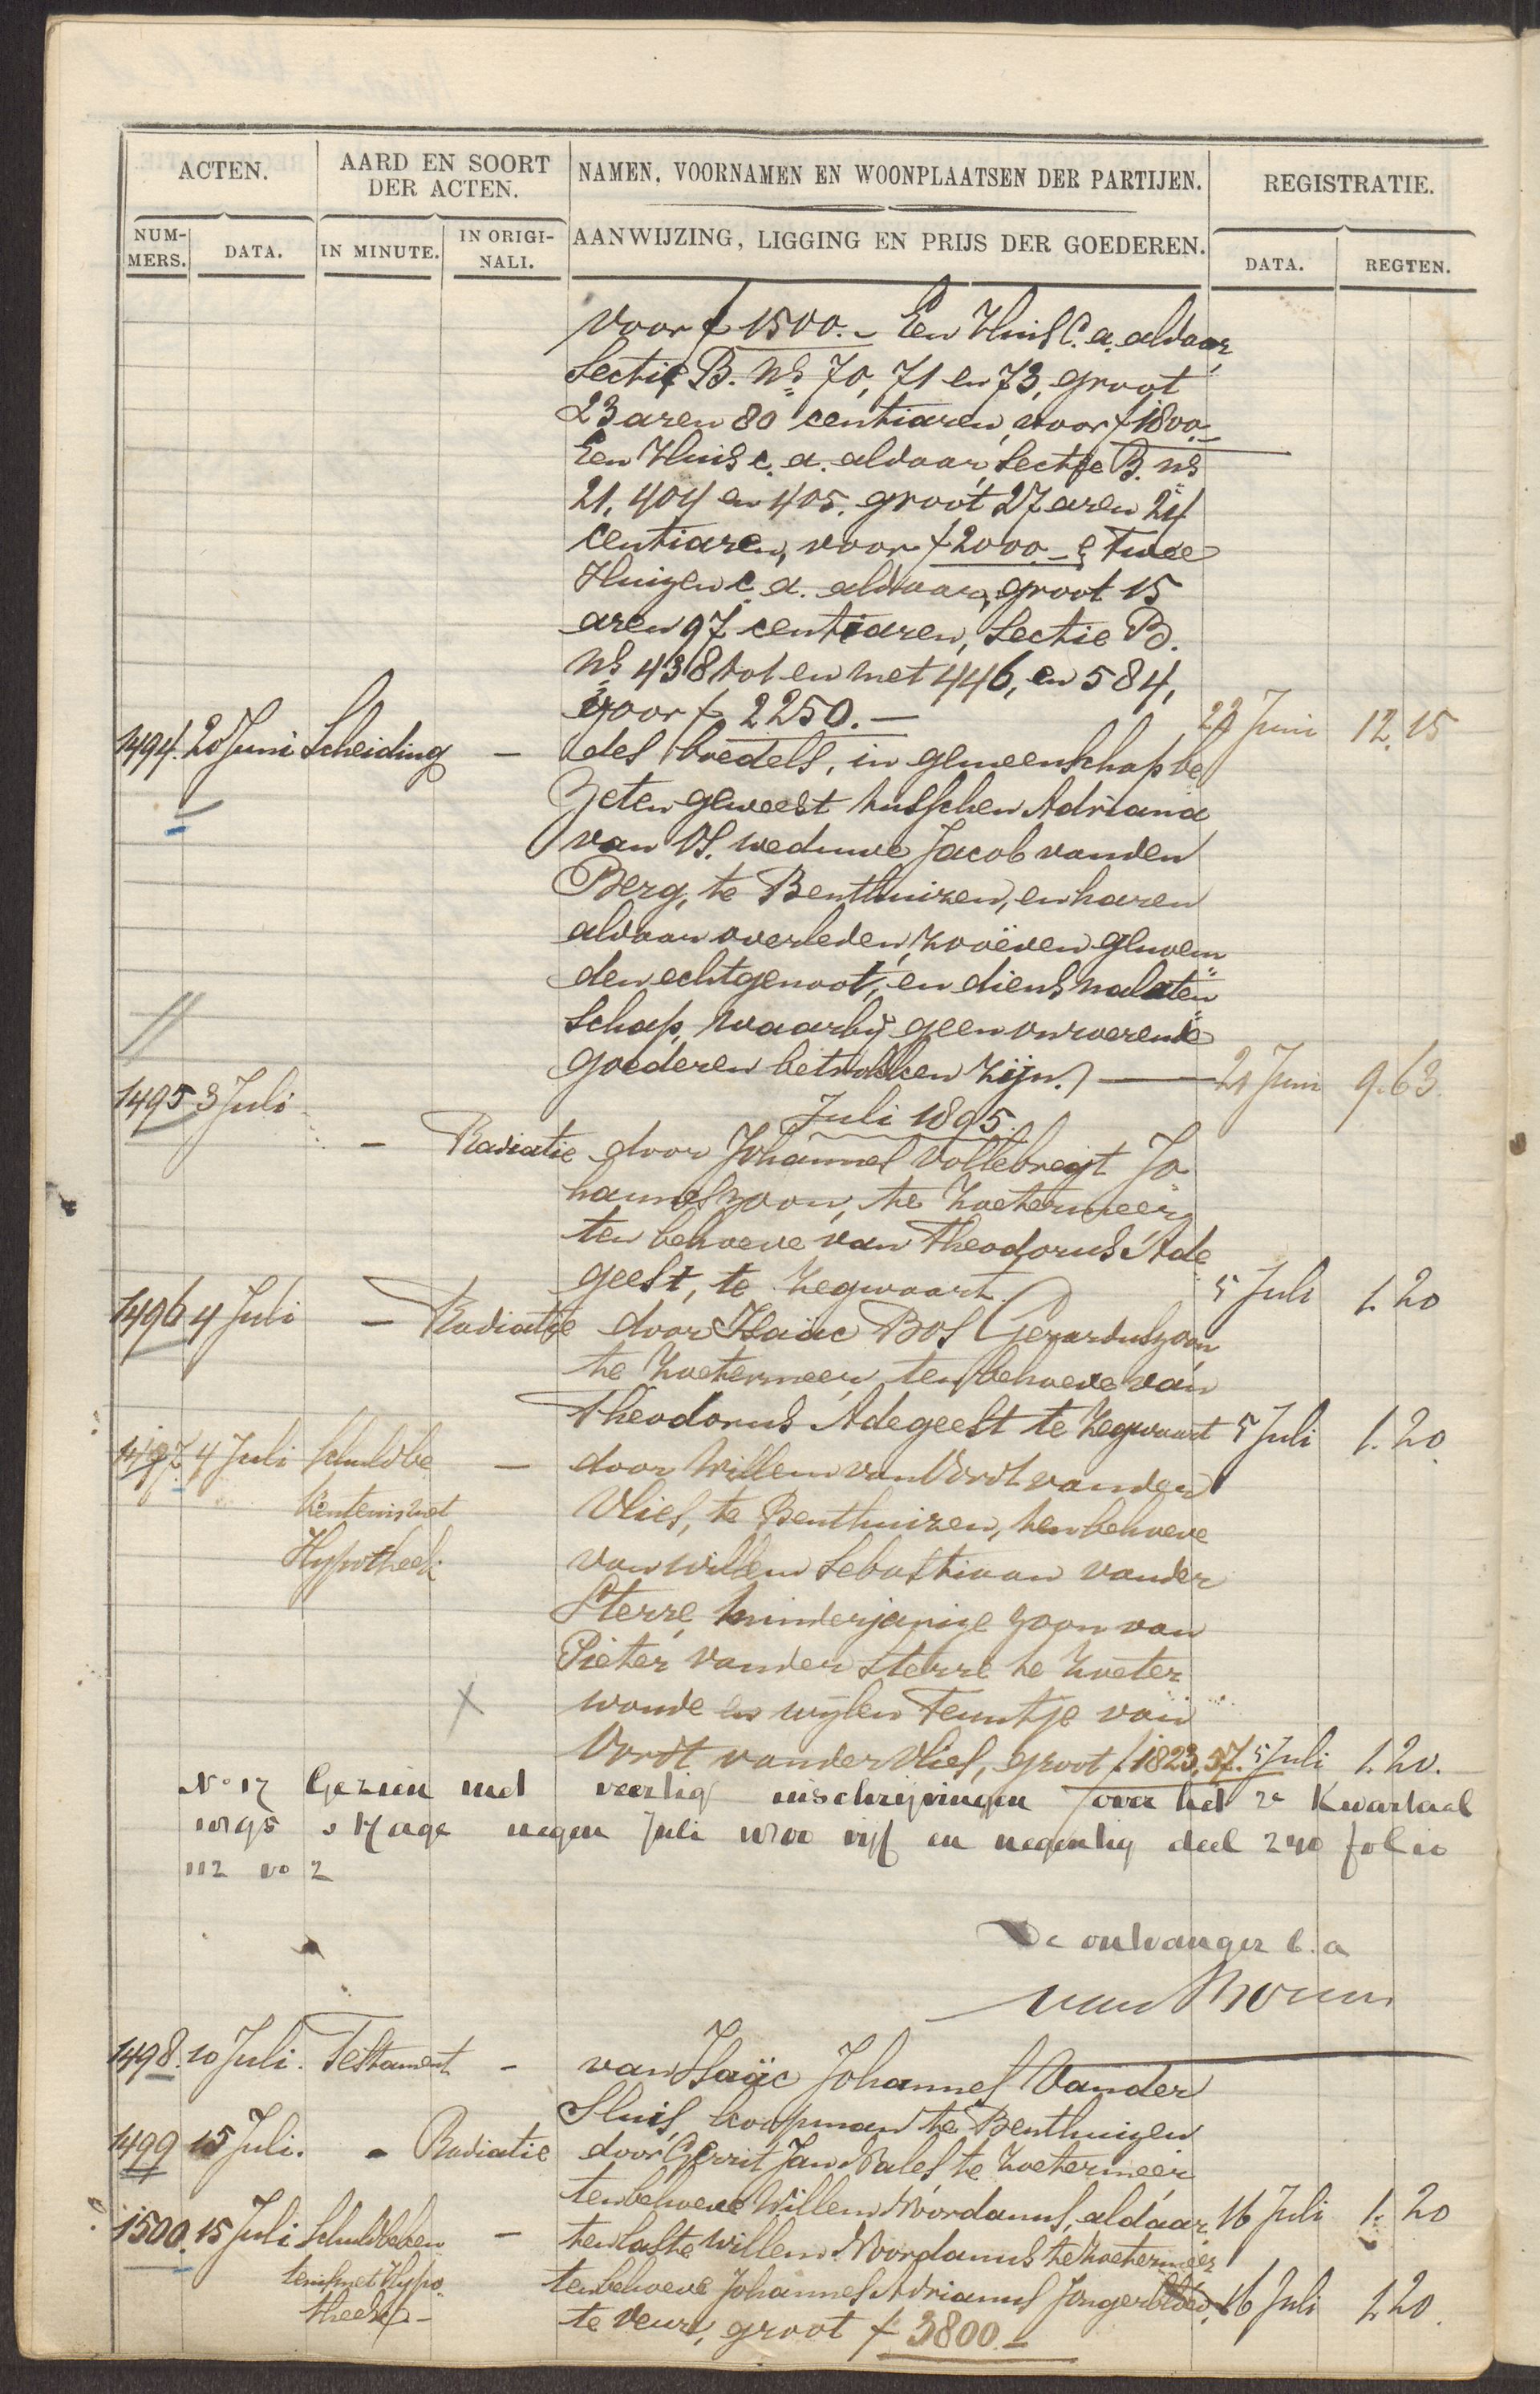 ACTEN.
AARD EN SOORT
DER ACTEN.
NAMEN, VOORNAMEN EN WOONPLAATSEN DER PARTIJEN.
REGISTRATIE.
NUM-
MERS.
DATA.
IN MINUTE.
IN ORIGI-
NALI.
AANWIJZING, LIGGING EN PRIJS DER GOEDEREN.
DATA.
REGTEN.
voor f 1500.- Een Huis c. a. aldaar,
Sectie B. Ns 70, 71 en 73, groot
23 aren 80 centiaren, voor f 1800.-
Een Huis c. a. aldaar, Sectie B. Ns
21, 404 en 405. groot 27 aren 24
centiaren, voor f 2000.- & Twee
Huizen c. a. aldaar, groot 15
aren 97 centiaren, Sectie B.
Ns 438 tot en met 446, en 584,
voor f 2250.- 22 Juni 12.15
1494. 20 Juni Scheiding - des boedels, in gemeenschap be
zeten geweest tusschen Adriana
van Os. weduwe Jacob van den
Berg, te Benthuizen, en haren
aldaar overleden, zooëven genoem
den echtgenoot, en diens nalaten
schap, waarbij geen onroerende
goederen betrokken zijn. - 21 Juni 9.63
Juli 1895.
1495 3 Juli - Radiatie door Johannes Vollebregt Jo
hanneszoon, te Zoetermeer,
ten behoeve van Theodorus Ade
geest, te Zegwaart. 5 Juli 1.20
1496 4 Juli - Radiatie door Isaäc Bos Gerarduszoon
te Zoetermeer, ten behoeve van
Theodorus Adegeest te Zegwaart 5 Juli 1.20
1497. 4 Juli Schuldbe - door Willem van Vordt van der
kentenis met Vlies, te Benthuizen, ten behoeve
Hypotheek van Willem Sebastiaan van der
Sterre, minderjarige zoon van
Pieter van der Sterre te Zoeter
woude en wijlen Teuntje van
Vordt van der Vlies, groot f 1823,57. 5 Juli 1.20.
No 17 Gezien met veertig inschrijvingen over het 2e Kwartaal
1895 s Hage negen Juli 1800 vijf en negentig deel 240 folio
112 vo 2
De ontvanger b. a
1498. 10 Juli. Testament - van Isaäc Johannes Van der
Sluis, koopman te Benthuizen
1499 15 Juli. - Radiatie door Gerrit Jan Vales te Zoetermeer
ten behoeve Willem Noordanus, aldaar 16 Juli 1.20
1500. 15 Juli Schuldbeken - ten laste Willem Noordanus te Zoetermeer
tenis met Hypo ten behoeve Johannes Adrianus Jongerbloed, 16 Juli 1.20.
theek - te Veur, groot f 3800.-